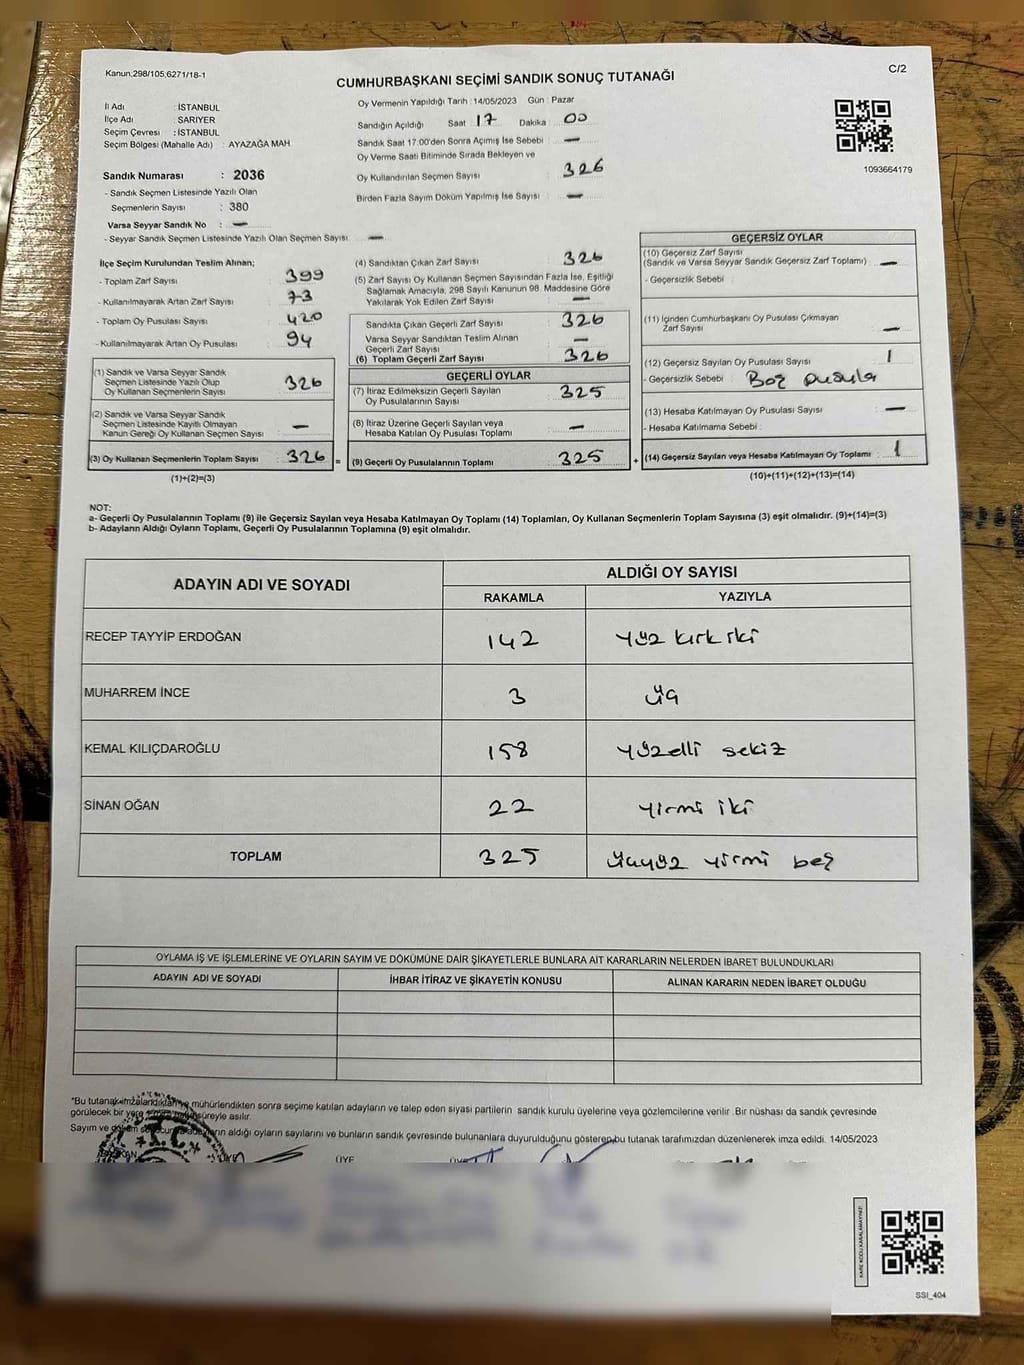 Kanun;298/105,6271/18-1
C/2
CUMHURBAŞKANI SEÇİMİ SANDIK SONUÇ TUTANAĞI
İl Adı : İSTANBUL
İlçe Adı : SARIYER
Seçim Çevresi : İSTANBUL
Seçim Bölgesi (Mahalle Adı) : AYAZAĞA MAH
Oy Vermenin Yapıldığı Tarih : 14/05/2023 Gün : Pazar
Sandığın Açıldığı Saat 17 Dakika 00
Sandık Saat 17:00'den Sonra Açımış İse Sebebi : —
Oy Verme Saati Bitiminde Sırada Bekleyen ve
Oy Kullandırılan Seçmen Sayısı : 326
Birden Fazla Sayım Döküm Yapılmış İse Sayısı : —
1093664179
Sandık Numarası : 2036
- Sandık Seçmen Listesinde Yazılı Olan
Seçmenlerin Sayısı : 380
Varsa Seyyar Sandık No : —
- Seyyar Sandık Seçmen Listesinde Yazılı Olan Seçmen Sayısı : —
İlçe Seçim Kurulundan Teslim Alınan;
- Toplam Zarf Sayısı : 399
- Kullanılmayarak Artan Zarf Sayısı : 73
- Toplam Oy Pusulası Sayısı : 420
- Kullanılmayarak Artan Oy Pusulası : 94
(1) Sandık ve Varsa Seyyar Sandık
Seçmen Listesinde Yazılı Olup
Oy Kullanan Seçmenlerin Sayısı : 326
(2) Sandık ve Varsa Seyyar Sandık
Seçmen Listesinde Kayıtlı Olmayan
Kanun Gereği Oy Kullanan Seçmen Sayısı : —
(3) Oy Kullanan Seçmenlerin Toplam Sayısı : 326 =
(1)+(2)=(3)
(4) Sandıktan Çıkan Zarf Sayısı : 326
(5) Zarf Sayısı Oy Kullanan Seçmen Sayısından Fazla İse, Eşitliği
Sağlamak Amacıyla, 298 Sayılı Kanunun 98. Maddesine Göre
Yakılarak Yok Edilen Zarf Sayısı : —
Sandıkta Çıkan Geçerli Zarf Sayısı : 326
Varsa Seyyar Sandıktan Teslim Alınan
Geçerli Zarf Sayısı : —
(6) Toplam Geçerli Zarf Sayısı : 326
GEÇERLİ OYLAR
(7) İtiraz Edilmeksizin Geçerli Sayılan
Oy Pusulalarının Sayısı : 325
(8) İtiraz Üzerine Geçerli Sayılan veya
Hesaba Katılan Oy Pusulası Toplamı : —
(9) Geçerli Oy Pusulalarının Toplamı : 325 +
GEÇERSİZ OYLAR
(10) Geçersiz Zarf Sayısı
(Sandık ve Varsa Seyyar Sandık Geçersiz Zarf Toplamı) : —
- Geçersizlik Sebebi :
(11) İçinden Cumhurbaşkanı Oy Pusulası Çıkmayan
Zarf Sayısı : —
(12) Geçersiz Sayılan Oy Pusulası Sayısı : 1
- Geçersizlik Sebebi : Boş pusula
(13) Hesaba Katılmayan Oy Pusulası Sayısı : —
- Hesaba Katılmama Sebebi :
(14) Geçersiz Sayılan veya Hesaba Katılmayan Oy Toplamı : 1
(10)+(11)+(12)+(13)=(14)
NOT:
a- Geçerli Oy Pusulalarının Toplamı (9) ile Geçersiz Sayılan veya Hesaba Katılmayan Oy Toplamı (14) Toplamları, Oy Kullanan Seçmenlerin Toplam Sayısına (3) eşit olmalıdır. (9)+(14)=(3)
b- Adayların Aldığı Oyların Toplamı, Geçerli Oy Pusulalarının Toplamına (9) eşit olmalıdır.
ADAYIN ADI VE SOYADI
ALDIĞI OY SAYISI
RAKAMLA YAZIYLA
RECEP TAYYİP ERDOĞAN 142 yüz kırk iki
MUHARREM İNCE 3 üç
KEMAL KILIÇDAROĞLU 158 yüzelli sekiz
SİNAN OĞAN 22 yirmi iki
TOPLAM 325 üçyüz yirmi beş
OYLAMA İŞ VE İŞLEMLERİNE VE OYLARIN SAYIM VE DÖKÜMÜNE DAİR ŞİKAYETLERLE BUNLARA AİT KARARLARIN NELERDEN İBARET BULUNDUKLARI
ADAYIN ADI VE SOYADI İHBAR İTİRAZ VE ŞİKAYETİN KONUSU ALINAN KARARIN NEDEN İBARET OLDUĞU
*Bu tutanak imzalandıktan ve mühürlendikten sonra seçime katılan adayların ve talep eden siyasi partilerin sandık kurulu üyelerine veya gözlemcilerine verilir .Bir nüshası da sandık çevresinde
görülecek bir yere süreyle asılır.
Sayım ve döküm sonucunda adayların aldığı oyların sayılarını ve bunların sandık çevresinde bulunanlara duyurulduğunu gösteren bu tutanak tarafımızdan düzenlenerek imza edildi. 14/05/2023
ÜYE ÜYE
KARE KODU KARALAMAYINIZ!
SSI_404